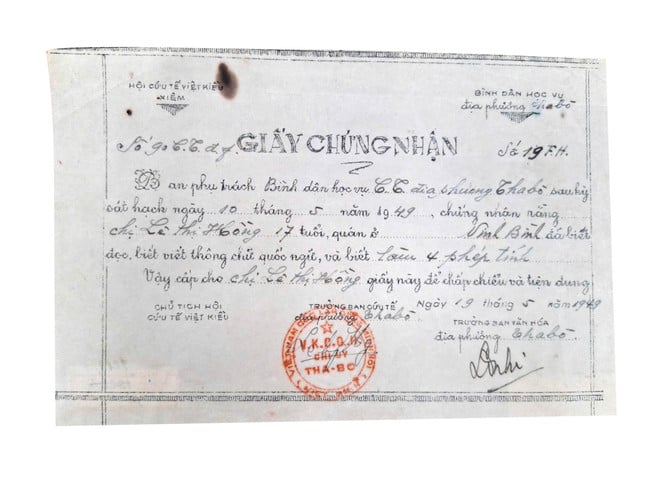 HỘI CỨU TẾ VIỆT KIỀU
XIÊM
BÌNH DÂN HỌC VỤ
địa phương Thabò
Số 90 C.T. đ.f. GIẤY CHỨNG NHẬN Số 19 F.H.
Ban phụ trách Bình dân học vụ C.T. địa phương Thabò sau kỳ
sát hạch ngày 10 tháng 5 năm 1949, chứng nhận rằng
chị Lê thị Hồng 17 tuổi, quán ở Vĩnh Bình đã biết
đọc, biết viết thông chữ quốc ngữ, và biết làm 4 phép tính
Vậy cấp cho chị Lê thị Hồng giấy này để chấp chiếu và tiện dung
Ngày 19 tháng 5 năm 1949
CHỦ TỊCH HỘI
CỨU TẾ VIỆT KIỀU
TRƯỞNG BAN CỨU TẾ
địa phương Thabò
TRƯỞNG BAN VĂN HÓA
địa phương Thabò.
V.K.C.Q.H
CHI ỦY
THA-BO